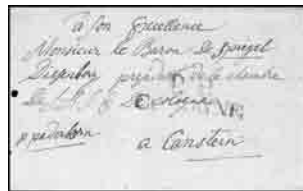 à Son Excellence
Monsieur le Baron de Spiegel
president de la chambre
de Cologne
p paderborn
a Canstein